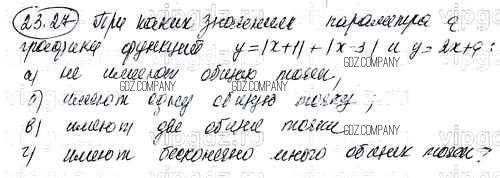 23.27 При каких значениях параметра a
графики функций y=|x+1|+|x-3| и y=2x+a:
а) не имеют общих точек,
GDZ.COMPANY
б) имеют одну общую точку;
GDZ.COMPANY
в) имеют две общие точки
GDZ.COMPANY
г) имеют бесконечно много общих точек?
GDZ.COMPANY